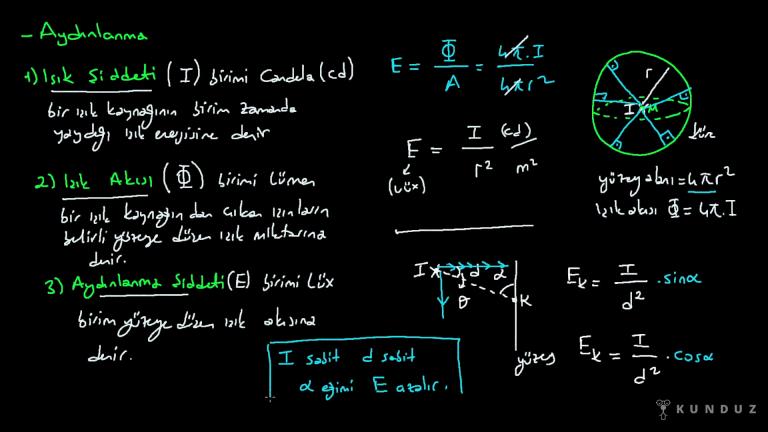 - Aydınlanma
1) Işık Şiddeti (I) birimi Candela (cd)
bir ışık kaynağının birim zamanda
yaydığı ışık enerjisine denir
2) Işık Akısı (Φ) birimi Lümen
bir ışık kaynağından çıkan ışınların
belirli yüzeye düşen ışık miktarına
denir.
3) Aydınlanma Şiddeti (E) birimi Lüx
birim yüzeye düşen ışık akısına
denir.
I sabit d sabit
α eğimi E azalır.
E = Φ/A = 4π.I/4πr²
E = I/r² (cd)/m²
(lüx)
r
I M
küre
yüzey alanı = 4πr²
ışık akısı Φ = 4π.I
I d α
θ K
yüzey
E_K = I/d² . sinα
E_K = I/d² . cosα
KUNDUZ